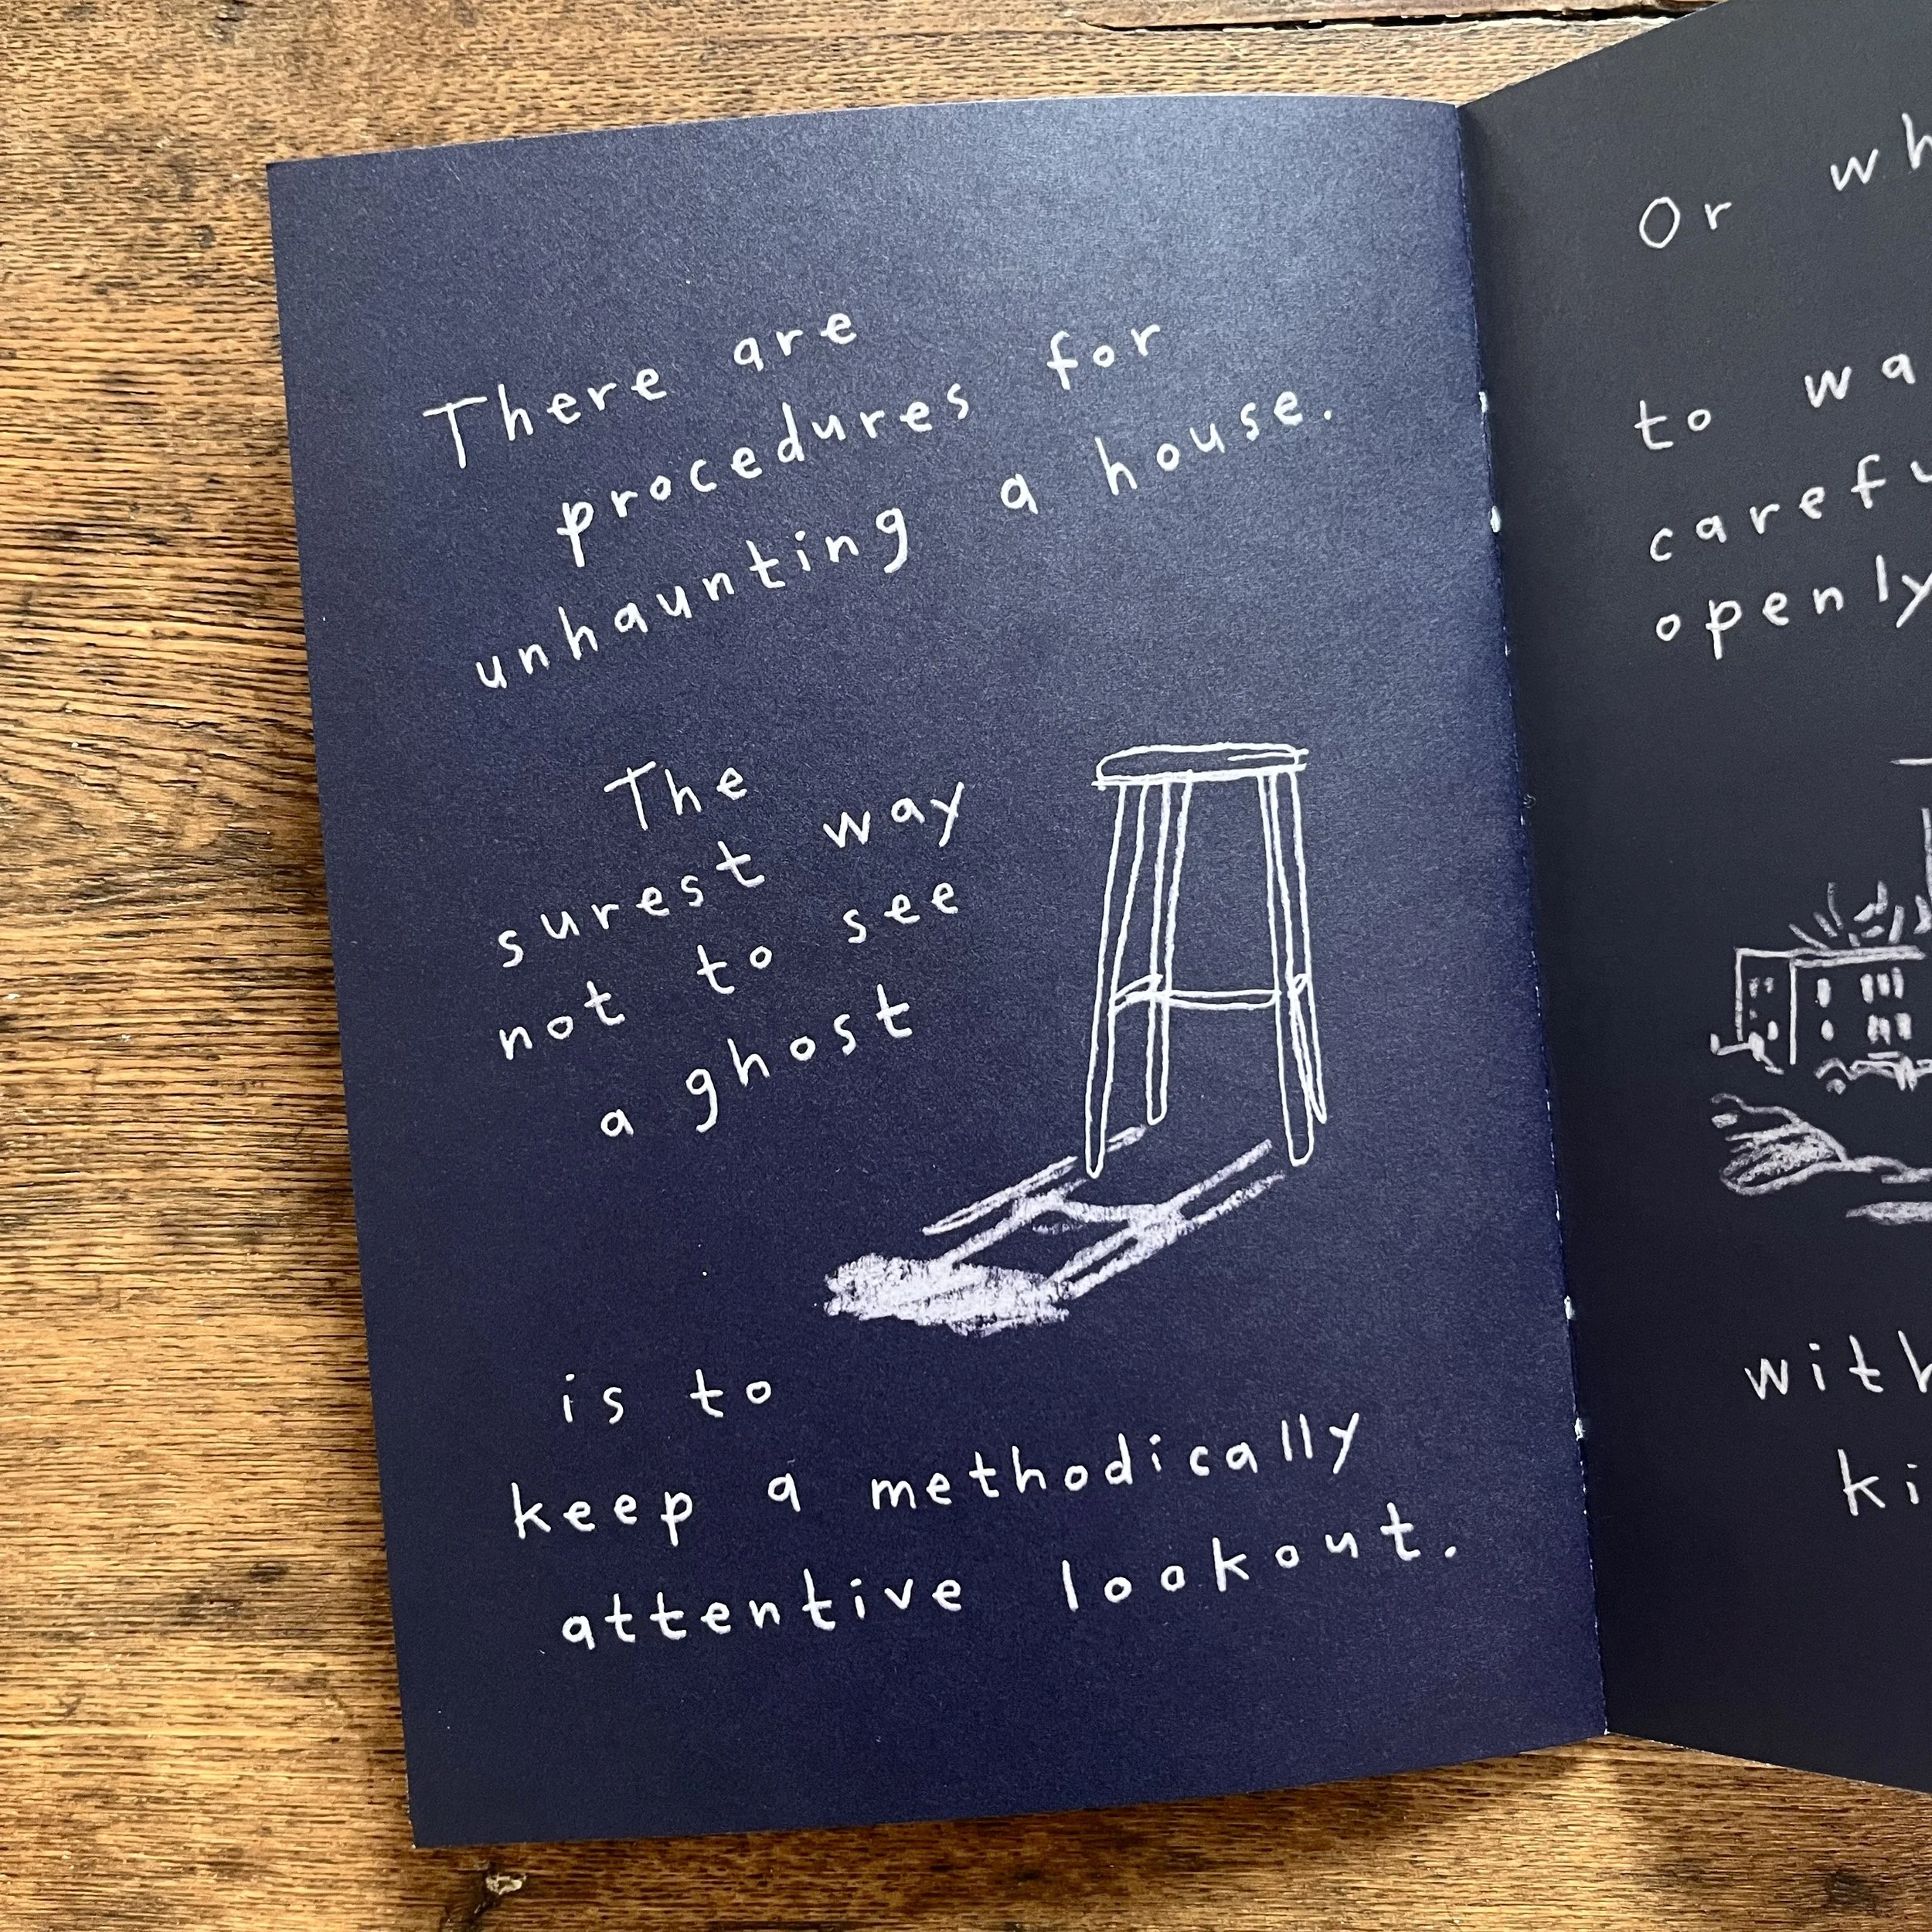 There are
procedures for
unhaunting a house.
The
surest way
not to see
a ghost
is to
keep a methodically
attentive lookout.
Or
to
openly